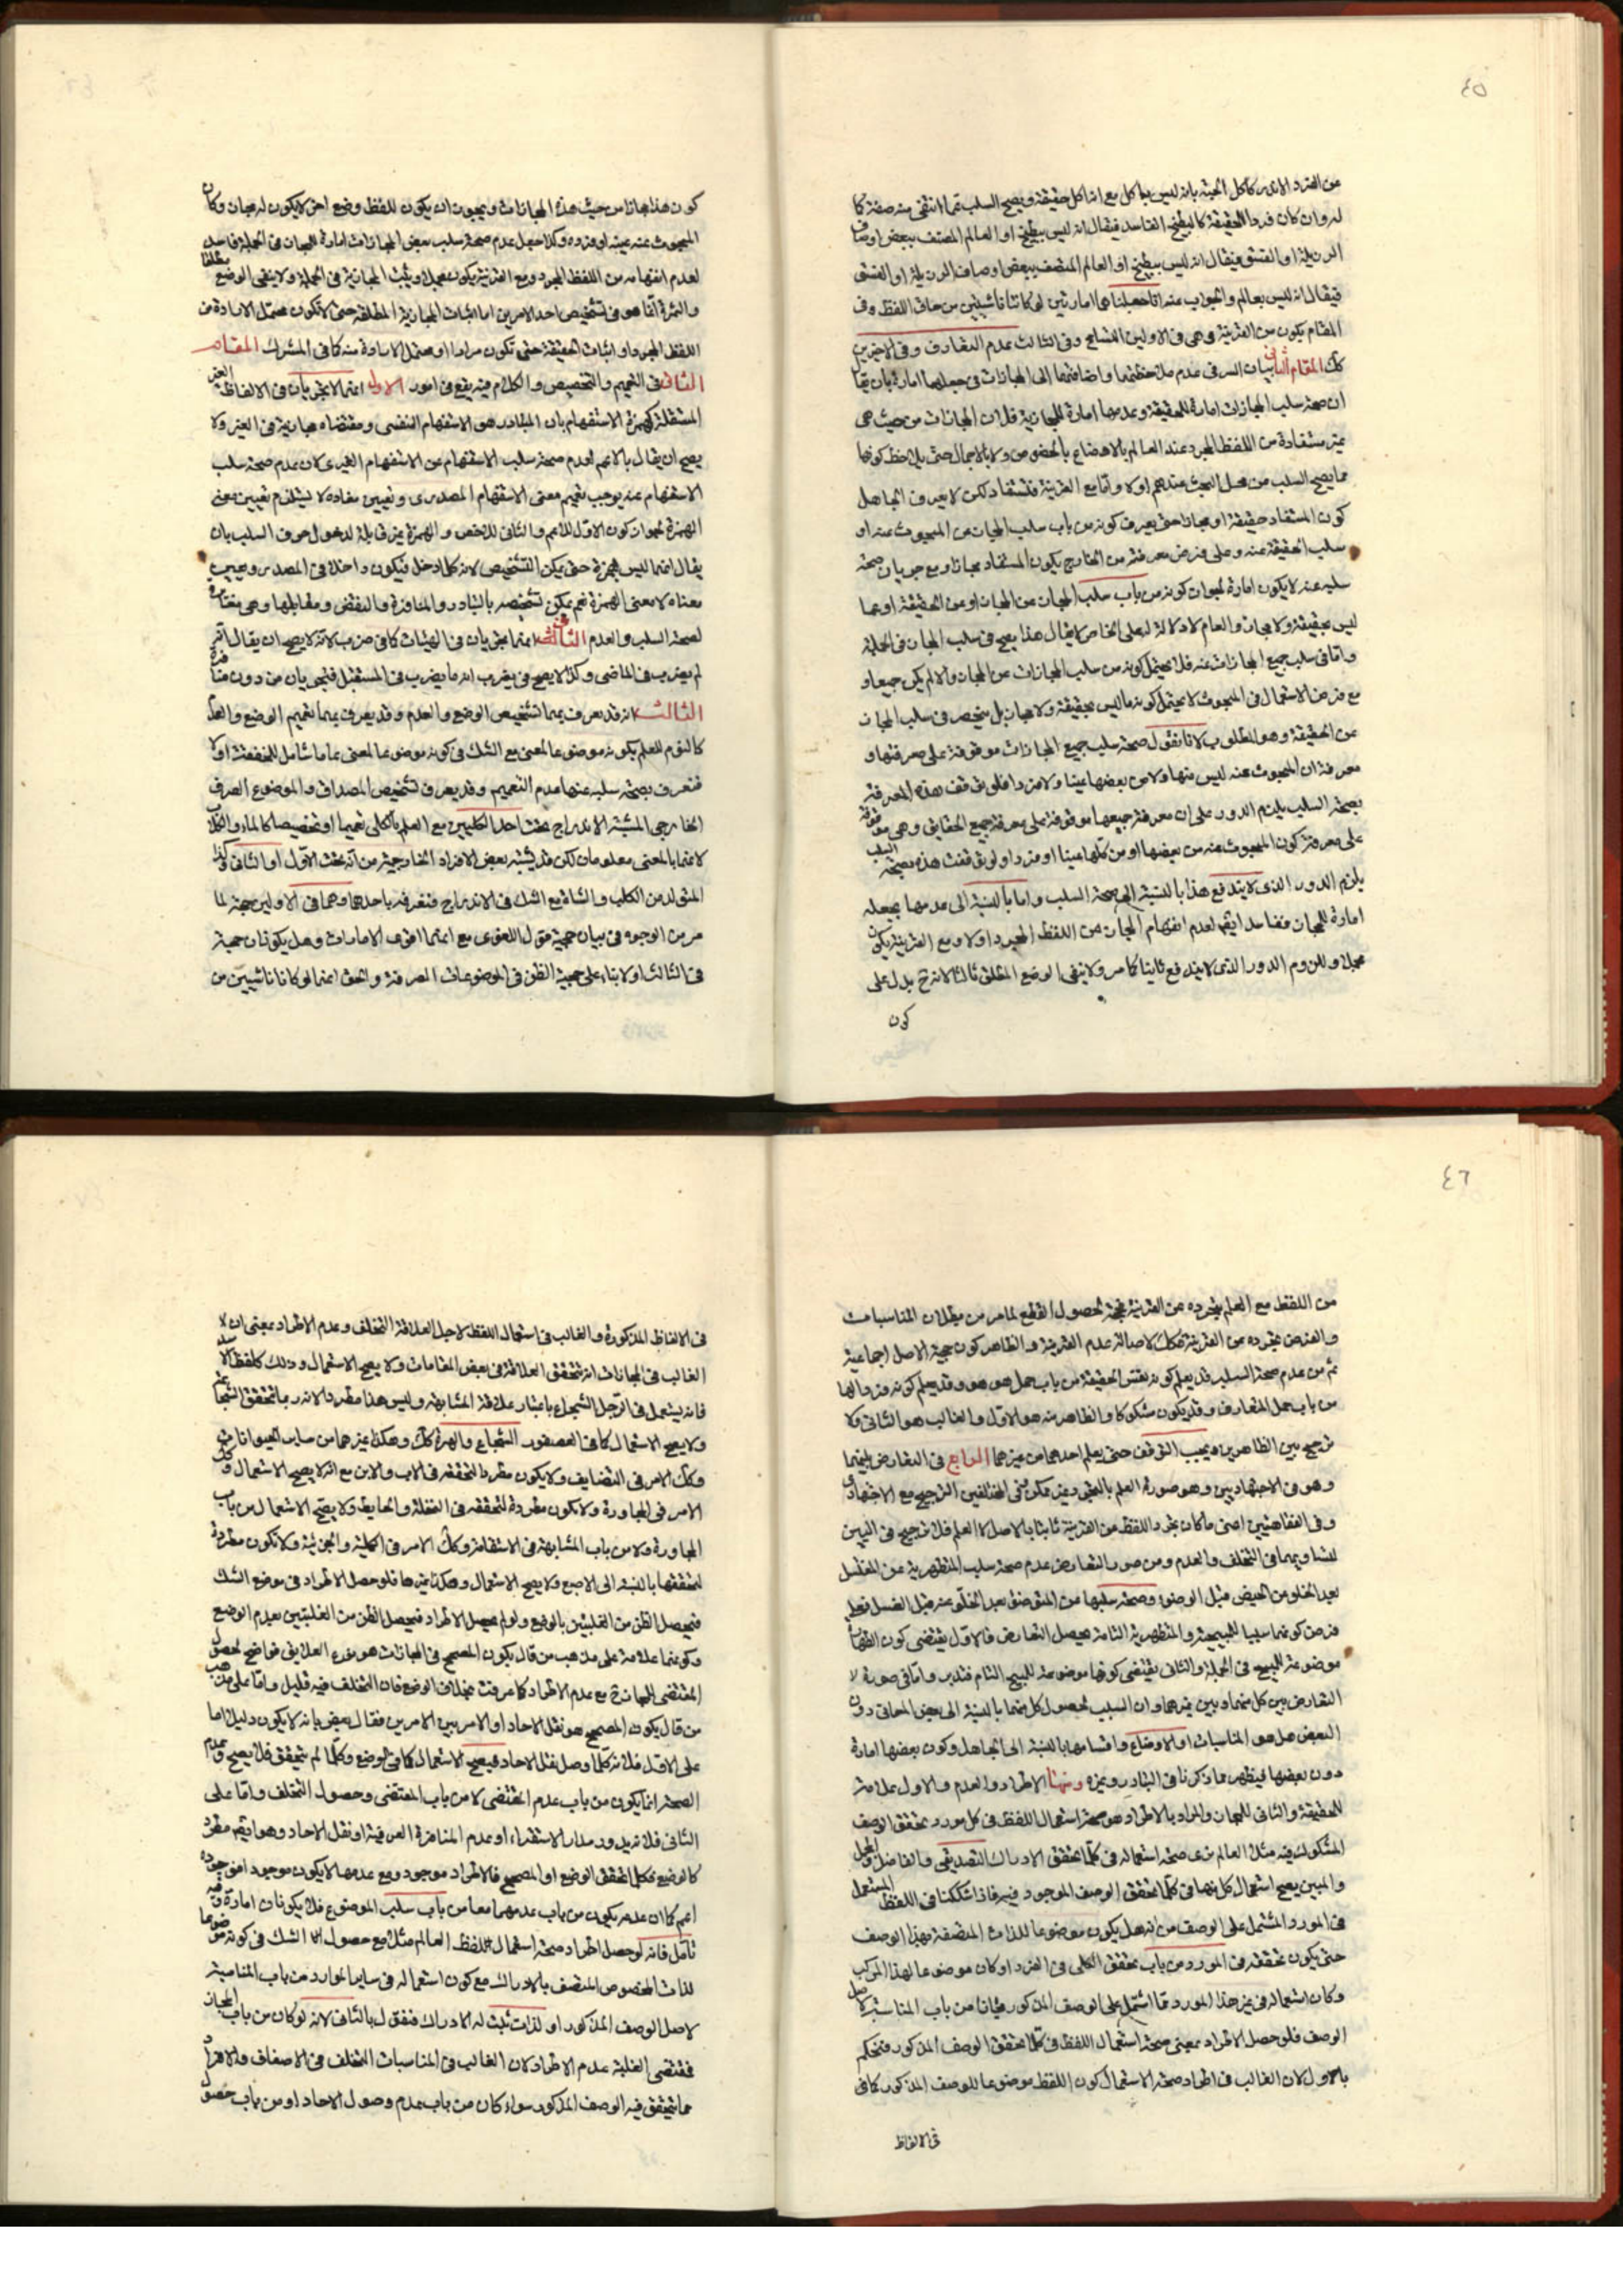 ٤٥
من الفرد الاندر كاكل الحبة بانه ليس باكل مع انه اكل حقيقة ويصح السلب عما انتفى منه صفة كا
له وان كان فردا للحقيقة كالبطيخ الفاسد فيقال انه ليس ببطيخ او العالم المتصف ببعض اوصاف
الرذيلة او الفسق فيقال انه ليس ببطيخ او العالم المتصف ببعض اوصاف الرذيلة او الفسق
فيقال انه ليس بعالم والجواب عنه انا جعلناهما امارتين لو كانتا ناشيتين من حاق اللفظ وفى
المقام يكون من القرينة وهى فى الاولين التسامح وفى الثالث عدم التعارف وفى الاخيرين
كك المقام الثانى بيان السر فى عدم ملاحظتهما واضافتهما الى المجازات فى جعلهما امارة بان يقال
ان صحة سلب المجازات امارة للحقيقة وعدمها امارة للمجازية فلان المجازات من حيث هى
غير مستفادة من اللفظ المجرد عند العالم بالاوضاع بالخصوص ولا بالاجمال حتى يلاحظ كونها
مما يصح السلب من محل البحث عندهم اولا واما مع القرينة فتستفاد لكن لا يعرف الجاهل
كون المستفاد حقيقة او مجازا حتى يعرف كونه من باب سلب المجاز عن المبحوث عنه او
سلب الحقيقة عنه وعلى فرض معرفته من الخارج يكون المستفاد مجازا ومع جريان صحة
سلبه عنه لا يكون امارة لجواز كونه من باب سلب المجاز من المجاز او من الحقيقة او عما
ليس بحقيقة ولا مجاز والعام لا دلالة له على الخاص لا يقال هذا يصح فى سلب المجاز فى الجملة
واما فى سلب جميع المجازات عنه فلا يحتمل كونه من سلب المجازات عن المجاز والا لم يكن جميعا و
مع فرض الاستعمال فى المبحوث لا يحتمل كونه مما ليس بحقيقة ولا مجاز بل ينحصر فى سلب المجاز
عن الحقيقة وهو المطلوب لانا نقول صحة سلب جميع المجازات موقوفة على معرفتها و
معرفة ان المبحوث عنه ليس منها ولا من بعضها عينا ولا فردا فلو توقف هذه المعرفة
بصحة السلب يلزم الدور على ان معرفة جميعها موقوفة على معرفة جميع الحقايق وهى موقوفة
على معرفة كون المبحوث عنه من بعضها او من كلها عينا او فردا ولو توقفت هذه بصحة السلب
يلزم الدور الذى لا يندفع هذا بالنسبة الى صحة السلب واما بالنسبة الى عدمها بجعله
امارة للمجاز ففاسد ايضا لعدم انفهام المجاز من اللفظ المجرد اولا ومع القرينة يكون
مجملا وللزوم الدور الذى لا يندفع ثانيا كما مر ولا ينفى الوضع المطلق ثالثا لانه ح يدل على
كون
كون هذا مجازا من حيث هذه المجازات ويجوز ان يكون للفظ وضع اخر لا يكون له مجاز وكان
المبحوث عنه عينه او فرده وكذا جعل عدم صحة سلب بعض المجازات امارة للمجاز فى الجملة فاسد
لعدم انفهامه من اللفظ المجرد ومع القرينة يكون مجملا ويثبت المجازية فى الجملة ولا ينفى الوضع مطلقا
والثمرة انما هو فى تشخيص احد الامرين اما اثبات المجازية المطلقة حتى لا تكون محتمل الارادة من
اللفظ المجرد او اثبات الحقيقة حتى تكون مرادا او محتمل الارادة منه كما فى المشترك المقام
الثالث فى التعميم والتخصيص والكلام فيه يقع فى امور الاول انهما لا يجريان فى الالفاظ الغير
المستقلة كهمزة الاستفهام بان المتبادر هو الاستفهام النفسى ومقتضاه مجازية فى الغير ولا
يصح ان يقال بالاعم لعدم صحة سلب الاستفهام عن الاستفهام الغيرى لان عدم صحة سلب
الاستفهام عنه يوجب تعميم معنى الاستفهام المصدرى وتعيين مفاده لا يستلزم تعيين معنى
الهمزة لجواز كون الاول للاعم والثانى للاخص والهمزة غير قابلة لدخول حرف السلب بان
يقال انهما ليس بهمزة حتى يمكن التشخيص لانه كلما دخل فيكون داخلا فى المصدر ويصيب
معناه لا معنى الهمزة نعم يمكن تشخيصه بالتبادر والمنافرة والنقض ومقابلها وهى مغايرة
لصحة السلب والعدم الثانى انهما يجريان فى الهيئات كما فى ضرب لانه لا يصح ان يقال انه
لم يضرب فى الماضى وكذا لا يصح فى يضرب انه ما يضرب فى المستقبل فيجريان من دون منافرة
الثالث انه قد يعرف بهما تشخيص الوضع والعدم وقد يعرف بهما تعميم الوضع والعدم
كالنوم للعلم بكونه موضوعا لمعنى مع الشك فى كونه موضوعا لمعنى عام شامل للخفقة اولا
فنعرف بصحة سلبه عنها عدم التعميم وقد يعرف تشخيص المصداق والموضوع الصرف
الخارجى المشتبه الاندراج تحت احد الكليين مع العلم بالكلى تعميما او تخصيصا كالماء والكلا
لانهما بالمعنى معلومان لكن قد يشتبه بعض الافراد الخارجية من انه تحت الاول او الثانى وكذا
المتولد من الكلب والشاة مع الشك فى الاندراج فنعرفه باحدهما وهما فى الاولين حجة لما
مر من الوجوه فى بيان حجية قول اللغوى مع انهما اقوى الامارات وهل يكونان حجة
فى الثالث اولا بناء على حجية الظن فى الموضوعات الصرفة والحق انهما لو كانا ناشيين من
٤٦
من اللفظ مع العلم بتجرده عن القرينة فحجة لحصول القطع لما مر من بطلان المناسبات
والفرض تجرده من القرينة فكك لاصالة عدم القرينة والظاهر كون حجية الاصل اجماعية
ثم من عدم صحة السلب قد يعلم كونه نفس الحقيقة من باب حمل هو هو وقد يعلم كونه فردا لها
من باب حمل المتعارف وقد يكون مشكوكا والظاهر منه هو الاول والغالب هو الثانى ولا
ترجيح بين الظاهرين فيجب التوقف حتى يعلم احدهما من غيرهما الرابع فى التعارض بينهما
وهو فى الاجتهاديين وهو صورة العلم بالتجرد غير ممكن حتى المختلفين الترجيح مع الاجتهادى
وفى الفقاهيتين اعنى ما كان تجرد اللفظ من القرينة ثابتا بالاصل لا العلم فلا ترجيح فى البين
لتساويهما فى التخلف والعدم ومن صور التعارض عدم صحة سلب المتطهرية عن المغتسل
بعد الخلو من الحيض قبل الوضوء وصحة سلبها من المتوضئ بعد الخلو عنه قبل الغسل فعلى
فرض كونهما سببا للمبيحية والمتطهرية التامة يحصل التعارض فالاول يقتضى كون الطهارة
موضوعة للمبيح فى الجملة والثانى يقتضى كونها موضوعة للمبيح التام فتدبر واما فى صورة لا
التعارض بين كل منهما وبين غيرهما وان السبب لحصول كل منهما بالنسبة الى بعض المعانى دون
البعض هل هو المناسبات او الاوضاع واقسامها بالنسبة الى الجاهل وكون بعضها امارة
دون بعضها فيظهر مما ذكرنا فى التبادر وغيره ومنها الاطراد والعدم والاول علامة
للحقيقة والثانى للمجاز والمراد بالاطراد هو صحة استعمال اللفظ فى كل مورد تحقق الوصف
المشكوك فيه مثلا العالم نرى صحة استعماله فى كلما تحقق الادراك التصديقى والفاضل والمجمل
والمبين يصح استعمال كل منها فى كلما تحقق الوصف الموجود فيه فاذا شككنا فى اللفظ المستعمل
فى المورد المشتمل على الوصف من انه هل يكون موضوعا للذات المتصفة بهذا الوصف
حتى يكون تحققه فى المورد من باب تحقق الكلى فى الفرد او كان موضوعا لهذا المركب
وكان استعماله فى غير هذا المورد مما اشتمل على الوصف المذكور مجازا من باب المناسبة لاصل
الوصف فلو حصل الاطراد بمعنى صحة استعمال اللفظ فى كلما تحقق الوصف المذكور فنحكم
بالاول لان الغالب فى اطراد صحة الاستعمال كون اللفظ موضوعا للوصف المذكور كما فى
فى الالفاظ
فى الالفاظ المذكورة والغالب فى استعمال اللفظ لاجل العلاقة التخلف وعدم الاطراد بمعنى ان لا
الغالب فى المجازات انه تتحقق العلاقة فى بعض المقامات ولا يصح الاستعمال وذلك كلفظ الاسد
فانه يستعمل فى الرجل الشجاع باعتبار علاقة المشابهة وليس هذا مطردا لانه ربما تتحقق الشجاعة
ولا يصح الاستعمال كما فى العصفور الشجاع والهرة كك وهكذا غيرهما من ساير الحيوانات
وكك الامر فى التضايف ولا يكون مطردا لتحققه فى الاب والابن مع انه لا يصح الاستعمال وكك
الامر فى المجاورة ولا تكون مطردة لتحققه فى النخلة والحايط ولا يصح الاستعمال من باب
المجاورة ولا من باب المشابهة فى الاستقامة وكك الامر فى الكلية والجزئية ولا تكون مطردة
لتحققها بالنسبة الى الاصبع ولا يصح الاستعمال وهكذا غيرها فلو حصل الاطراد فى موضع الشك
فيحصل الظن من الغلبتين بالوضع ولو لم يحصل الاطراد فيحصل الظن من الغلبتين بعدم الوضع
وكونهما علامة على مذهب من قال بكون المصحح فى المجازات هو نوع العلايق فواضح لحصول
المقتضى للمجاز ح مع عدم الاطراد كما عرفت بخلاف الوضع فان التخلف فيه قليل واما على مذهب
من قال بكون المصحح هو نقل الاحاد او الامر بين الامرين فقال بعض بانه لا يكون دليلا اما
على الاول فلانه كلما وصل نقل الاحاد فيصح الاستعمال كما فى الوضع وكلما لم يتحقق فلا يصح وعدم
الصحة انما يكون من باب عدم المقتضى لا من باب المقتضى وحصول التخلف واما على
الثانى فلانه يدور مدار الاستقراء او عدم المنافرة العرفية او نقل الاحاد وهو ايضا مطرد
كالوضع فكلما تحقق الوضع او المصحح فالاطراد موجود ومع عدمها لا يكون موجودا فوجوده
اعم كما ان عدمه يكون من باب عدمهما معا من باب سلب الموضوع فلا يكونان امارة وفيه
تامل فانه لو حصل اطراد صحة استعمال لفظ العالم مثلا مع حصول الشك فى كونه موضوعا
لذات المخصوص المتصف بالادراك مع كون استعماله فى ساير الموارد من باب المناسبة
لاصل الوصف المذكور او لذات ثبت له الادراك فنقول بالثانى لانه لو كان من باب المجاز
فمقتضى الغلبة عدم الاطراد لان الغالب فى المناسبات التخلف فى الاصناف والافراد
مما تتحقق فيه الوصف المذكور سواء كان من باب عدم وصول الاحاد او من باب حصول